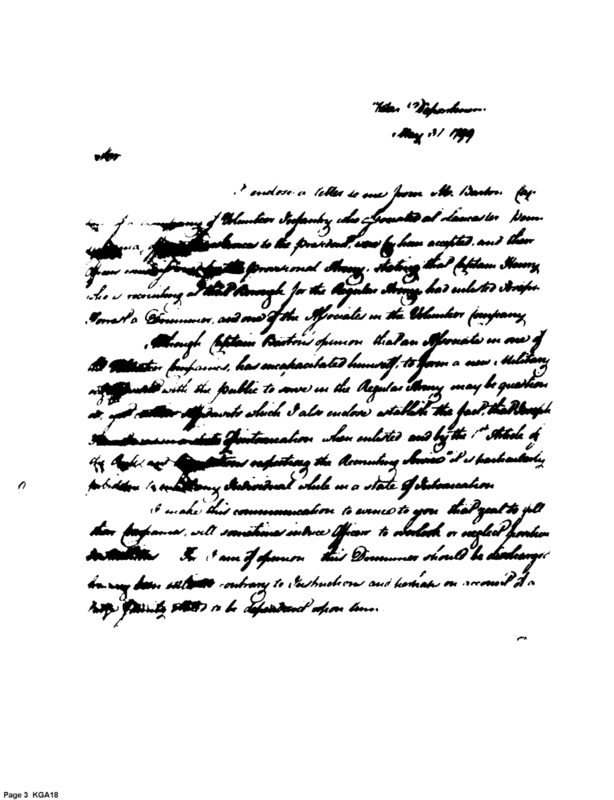 War Department
May 31 1799
Sir
I enclose a letter to me from Mr. Barton Cap-
of a company of Volunteer Infantry who associated at Lancaster Penn-
to the president, was by him accepted, and their
provisional Army, stating that Captain Henry
who is recruiting at that Borough for the Regular Army, had enlisted Joseph
a Drummer, and one of the Associates in the Volunteer Company
Although Captain Barton's opinion that an Associate in one of
the Volunteer Companies, has incapacitated himself, to form a new Military
with the public to serve in the Regular Army may be question
ed, yet affidavits which I also enclose establish the fact, that Joseph
was in a state of intoxication when enlisted and by the 1st Article of
the Rules and Regulations respecting the Recruiting Service it is particularly
forbidden to enlist any Individual while in a state of Intoxication
I make this communication to evince to you that zeal to fill
their Companies, will sometimes induce Officers to overlook or neglect
I am of opinion this Drummer should be discharged
having been enlisted contrary to Instruction and on account of a
family to be dependent upon him.
Page 3 KGA18